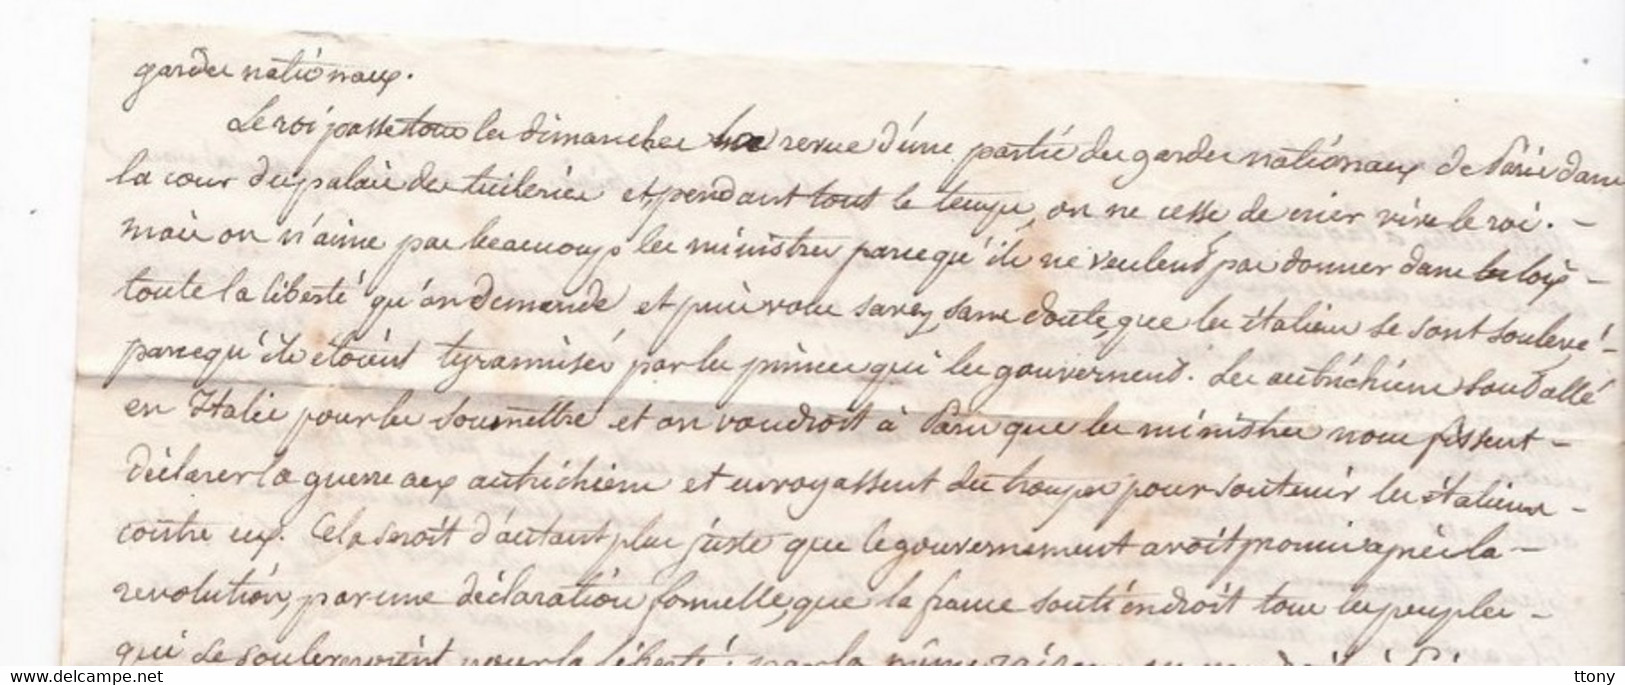 gardes nationaux.
Le roi passe tous les dimanches la revue d'une partie des gardes nationaux de Paris dans
la cour du palais des tuileries et pendant tout le temps, on ne cesse de crier vive le roi. -
mais on n'aime pas beaucoup les ministres parcequ'ils ne veulent pas donner dans les lois -
toute la liberté qu'on demande et puis vous savez, sans doute, que les italiens se sont soulevé -
parcequ'ils étoient tyrannisés par les princes qui les gouvernent. Les autrichiens sont allé
en Italie pour les soumettre et on voudroit à Paris que les ministres nous fissent -
déclarer la guerre aux autrichiens et envoyassent des troupes pour soutenir les italiens -
contre eux. Cela seroit d'autant plus juste que le gouvernement avoit promis après la -
revolution, par une déclaration formelle, que la france soutiendroit tous les peuples -
qui se souleveroient pour la liberté; par la même raison
ttony
delcampe.net